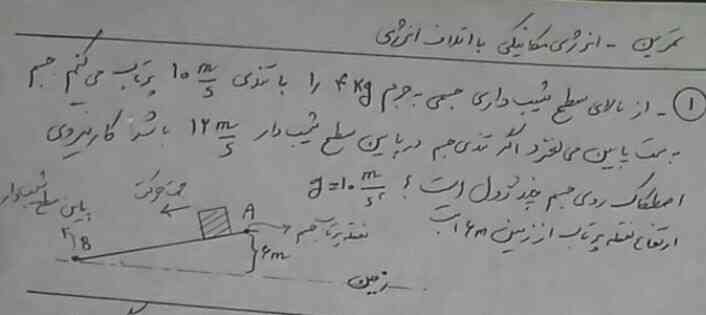 تمرین - انرژی مکانیکی با اتلاف انرژی
① - از بالای سطح شیب داری جسمی به جرم 4 kg را با تندی 10 m/s پرتاب می کنیم جسم
به سمت پایین می لغزد اگر تندی جسم در پایین سطح شیب دار 12 m/s باشد کار نیروی
اصطکاک روی جسم چند ژول است؟ g = 10 m/s²
ارتفاع نقطه پرتاب از زمین 6m است
جهت حرکت
پایین سطح شیبدار
A
نقطه پرتاب جسم
B
6m
زمین